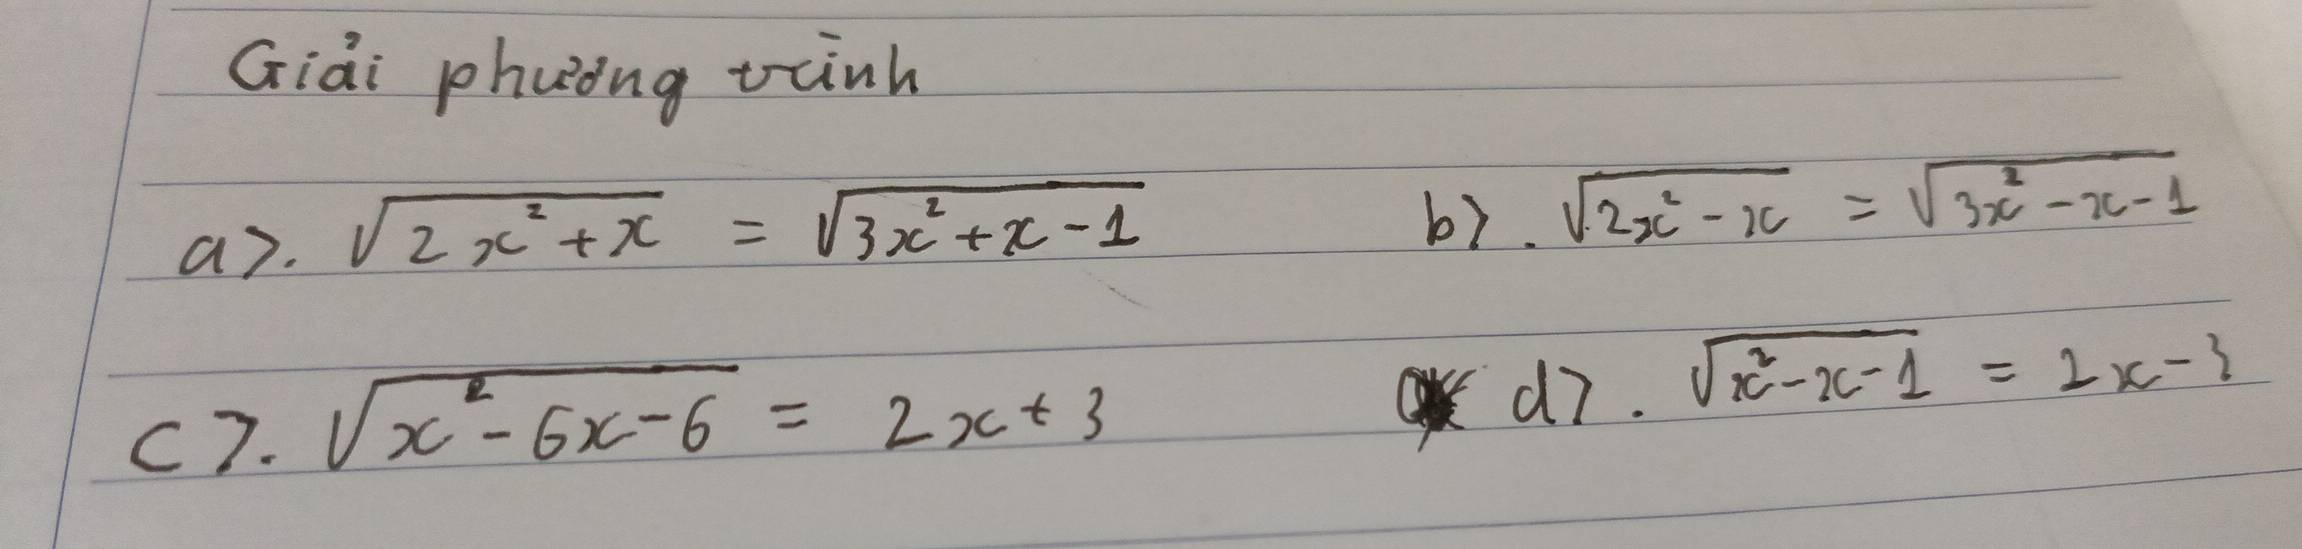 Giải phương trình
a>. √(2x² + x) = √(3x² + x - 1) b>. √(2x² - x) = √(3x² - x - 1)
c>. √(x² - 6x - 6) = 2x + 3 d>. √(x² - x - 1) = 2x - 3